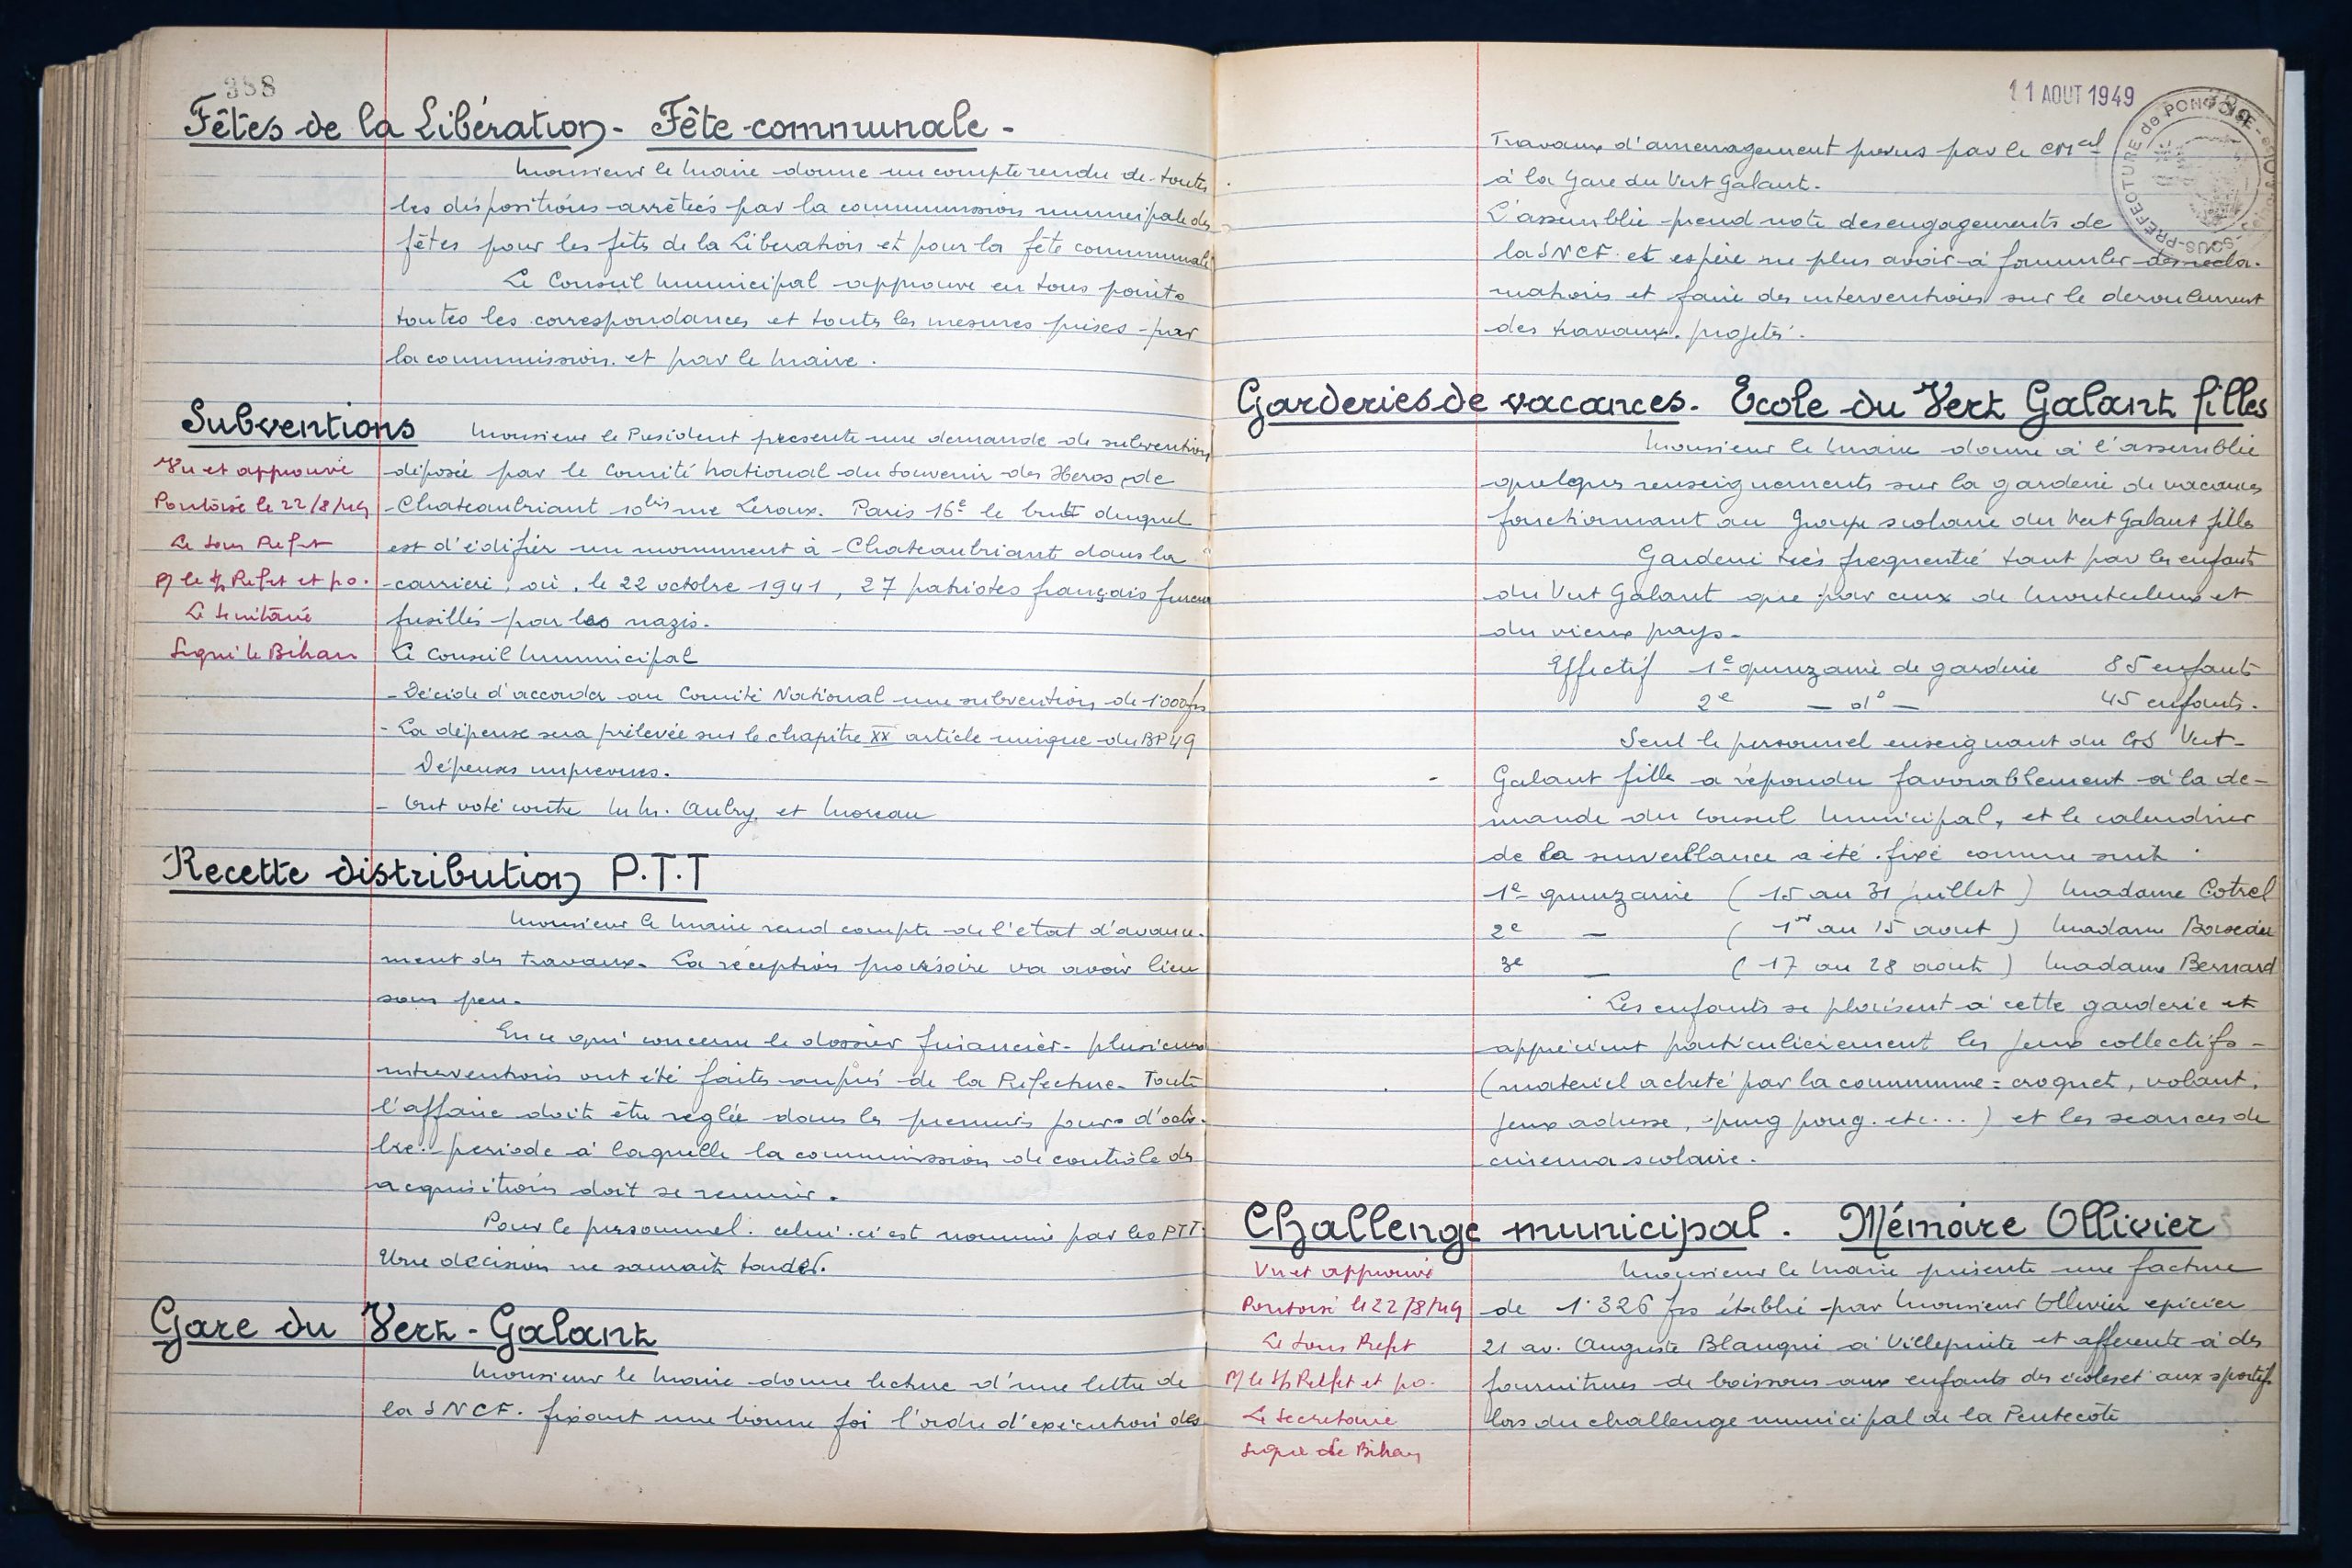 388
Fêtes de la Libération - Fête communale -
Monsieur le Maire donne un compte rendu de toutes
les dispositions arrêtées par la commission municipale des
fêtes pour les fêtes de la Libération et pour la fête communale
Le Conseil Municipal approuve en tous points
toutes les correspondances et toutes les mesures prises par
la commission et par le Maire.
Subventions
Monsieur le President presente une demande de subvention
déposée par le Comité National du Souvenir des Heros de
Chateaubriant 10bis rue Leroux. Paris 16e le but duquel
est d'édifier un monument à Chateaubriant dans la
carrière, où, le 22 octobre 1941, 27 patriotes français furent
fusillés par les nazis.
Le Conseil Municipal
- Décide d'accorder au Comité National une subvention de 1.000 frs
- La dépense sera prélevée sur le chapitre XX article unique du BP 49
Dépenses imprevues.
- Ont voté contre M.M. Aubry et Moreau
Vu et approuvé
Pontoise le 22/8/49
Le Sous Prefet
P/ le S/ Prefet et p.o.
Le Secrétaire
Signé le Bihan
Recette distribution P.T.T
Monsieur le Maire rend compte de l'état d'avance-
ment des travaux. La réception provisoire va avoir lieu
sous peu.
En ce qui concerne le dossier financier - plusieurs
interventions ont été faites auprès de la Prefecture. Toute
l'affaire doit être reglée dans les premiers jours d'octo-
bre.. periode à laquelle la commission de contrôle des
acquisitions doit se reunir.
Pour le personnel. celui-ci est nommé par les PTT.
Une decision ne saurait tarder.
Gare du Vert-Galant
Monsieur le Maire donne lecture d'une lettre de
la SNCF. fixant une bonne foi l'ordre d'exécution des
11 AOUT 1949
SOUS-PREFECTURE de PONTOISE
Travaux d'amenagement prevus par le CMal
à la Gare du Vert Galant.
L'assemblée prend note des engagements de
la SNCF. et espère ne plus avoir à formuler des recla-
mations et faire des interventions sur le deroulement
des travaux. projetés.
Garderies de vacances. Ecole du Vert Galant filles
Monsieur le Maire donne à l'assemblée
quelques renseignements sur la garderie de vacances
fonctionnant au Groupe scolaire du Vert Galant filles
Garderie très frequentée tant par les enfants
du Vert Galant que par ceux de Montceleux et
du vieux pays.
Effectif 1e quinzaine de garderie 85 enfants
2e — d° — 45 enfants.
Seul le personnel enseignant du GS Vert-
Galant filles a répondu favorablement à la de-
mande du Conseil Municipal, et le calendrier
de la surveillance a été fixé comme suit :
1e quinzaine ( 15 au 31 juillet ) Madame Cotrel
2e — ( 1er au 15 aout ) Madame
3e — ( 17 au 28 aout ) Madame Bernard
Les enfants se plaisent à cette garderie et
apprécient particulièrement les jeux collectifs -
(materiel acheté par la commune = croquet, volant,
jeux adresse, ping pong. etc...) et les seances de
cinema scolaire.
Challenge municipal. Mémoire Ollivier
Monsieur le Maire présente une facture
de 1.326 frs établie par Monsieur Ollivier epicier
21 av. Auguste Blanqui à Villepinte et afferente à des
fournitures de boissons aux enfants des écoles et aux sportifs
lors du challenge municipal de la Pentecôte
Vu et approuvé
Pontoise le 22/8/49
Le Sous Prefet
P/ le S/ Prefet et p.o.
Le Secretaire
Signé le Bihan